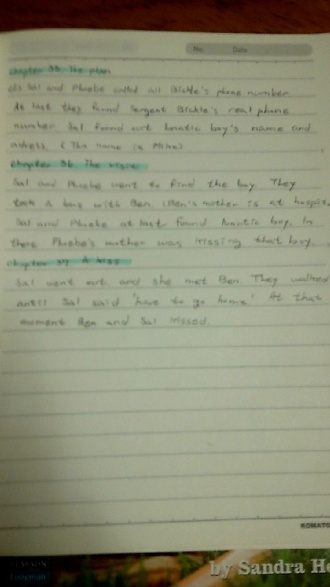 No. Date
Chapter 35. The plan
Sal and Phoebe called all Bickle's phone number
At last they found Sergent Bickle's real phone
number Sal found out lunatic boy's name and
adress. (The name is Mike)
Chapter 36. The visit
Sal and Phoebe went to find the boy. They
took a bus with Ben. (Ben's mother is at hospital
Sal and Phoebe at last found lunatic boy. In
there Phoebe's mother was kissing that boy.
Chapter 37. A kiss
Sal went out and she met Ben. They walked
until Sal said 'have to go home' At that
moment Ben and Sal kissed.
KOMATS
by Sandra He